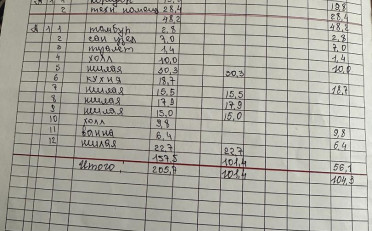 2 28,4 28,4
48,2 48,2
1 1 тамбур 2.8 2.8
2 сан узел 7.0 7.0
3 туалет 1,4 1,4
4 холл 10,0 10,0
5 жилая 30,3 30,3
6 кухня 18,7 18,7
7 жилая 15,5 15,5
8 жилая 17,9 17,9
9 жилая 15.0 15,0
10 холл 9,8 9,8
11 ванна 6,4 6,4
12 жилая 22,7 22,7
157,5 101,4 56,1
Итого: 205,7 101,4 104,3